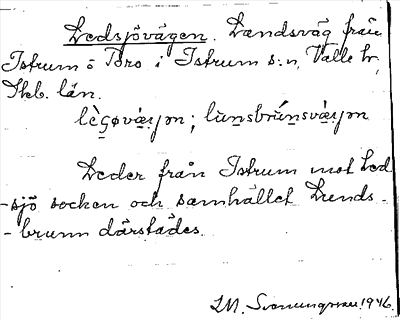 Ledsjövägen. Landsväg från
Istrum ö Bro i Istrum s:n, Valle hr,
Skb. län.
lèʂøvá̤ɪjm; lu̇nsbrúnsvá̤ɪjm
Leder från Istrum mot Led
-sjö socken och samhället Lunds-
-brunn därstädes.
I.M. 1946.